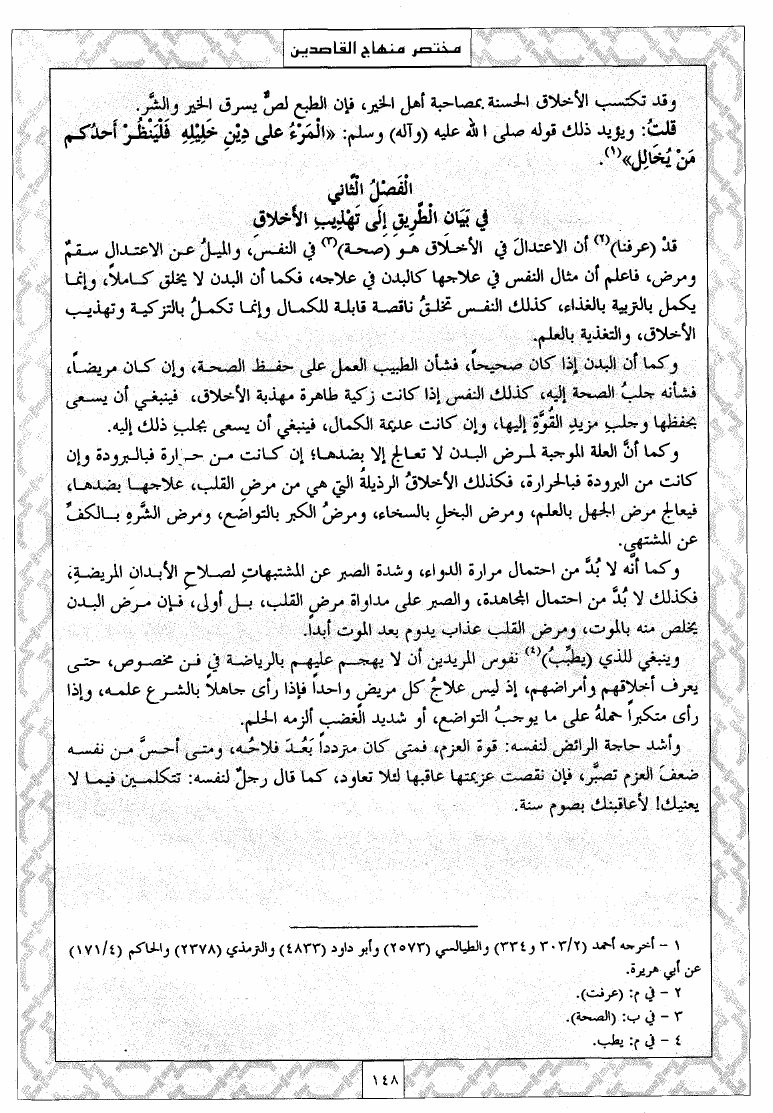 مختصر منهاج القاصدين
وقد تكتسب الأخلاق الحسنة بمصاحبة أهل الخير، فإن الطبع لصٌّ يسرق الخير والشَّر.
قلتُ: ويؤيد ذلك قوله صلى الله عليه (وآله) وسلم: «الْمَرْءُ على دِيْنِ خَلِيْلِهِ فَلْيَنْظُرْ أَحدُكم
مَنْ يُخَالِل»(١).
الْفَصْلُ الْثَّاني
فِي بَيَان الْطَّرِيق إِلَى تَهْذِيبِ الأَخلاقِ
قدْ (عرفنا)(٢) أن الاعتدالَ في الأخلاق هو (صحة)(٣) في النفس، والميلُ عن الاعتدال سقمٌ
ومرض، فاعلم أن مثال النفس في علاجها كالبدن في علاجه، فكما أن البدن لا يخلق كاملاً، وإنما
يكمل بالتربية بالغذاء، كذلك النفس تخلقُ ناقصة قابلة للكمال وإنما تكملُ بالتزكية وتهذيب
الأخلاق، والتغذية بالعلم.
وكما أن البدن إذا كان صحيحاً، فشأن الطبيب العمل على حفظ الصحة، وإن كان مريضاً،
فشأنه جلبُ الصحة إليه، كذلك النفس إذا كانت زكية طاهرة مهذبة الأخلاق، فينبغي أن يسعى
بحفظها وجلبِ مزيدِ القُوَّةِ إليها، وإن كانت عديمة الكمال، فينبغي أن يسعى بجلبِ ذلك إليه.
وكما أنَّ العلة الموجبة لمرض البدن لا تعالج إلا بضدها؛ إن كانت من حرارة فبالبرودة وإن
كانت من البرودة فبالحرارة، فكذلك الأخلاقُ الرذيلةُ التي هي من مرضِ القلب، علاجها بضدها،
فيعالج مرض الجهل بالعلم، ومرض البخلِ بالسخاء، ومرضُ الكبر بالتواضع، ومرض الشَّرهِ بالكفِّ
عن المشتهى.
وكما أنَّه لا بُدَّ من احتمال مرارة الدواء، وشدة الصبر عن المشتبهاتِ لصلاحِ الأبدانِ المريضةِ،
فكذلك لا بُدَّ من احتمال المجاهدة، والصبر على مداواة مرضِ القلب، بل أولى، فإن مرض البدن
يخلص منه بالموت، ومرض القلب عذاب يدوم بعد الموت أبداً.
وينبغي للذي (يطبِّبُ)(٤) نفوس المريدين أن لا يهجم عليهم بالرياضة في فن مخصوص، حتى
يعرف أخلاقهم وأمراضهم، إذ ليس علاجُ كل مريضٍ واحداً فإذا رأى جاهلاً بالشرع علمه، وإذا
رأى متكبراً حملهُ على ما يوجبُ التواضع، أو شديد الغضب ألزمه الحلم.
وأشد حاجة الرائض لنفسه: قوة العزم، فمتى كان متردداً بَعُدَ فلاحُه، ومتى أحسَّ من نفسه
ضعفَ العزم تصبَّر، فإن نقصت عزيمتها عاقبها لئلا تعاود، كما قال رجلٌ لنفسه: تتكلمين فيما لا
يعنيك! لأعاقبنك بصوم سنة.
١ - أخرجه أحمد (٣٠٣/٢ و٣٣٤) والطيالسي (٢٥٧٣) وأبو داود (٤٨٣٣) والترمذي (٢٣٧٨) والحاكم (١٧١/٤)
عن أبي هريرة.
٢ - في م: (عرفت).
٣ - في ب: (الصحة).
٤ - في م: يطب.
١٤٨